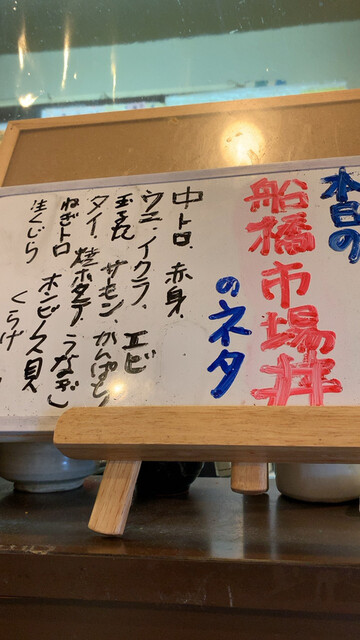 本日の
船橋市場丼
のネタ
中トロ、赤身、
ウニ、イクラ、エビ
玉子丸 サーモン、かんぱち
タイ、焼ホタテ、うなぎ
ねぎトロ ホンビノス貝
生くじら くらげ